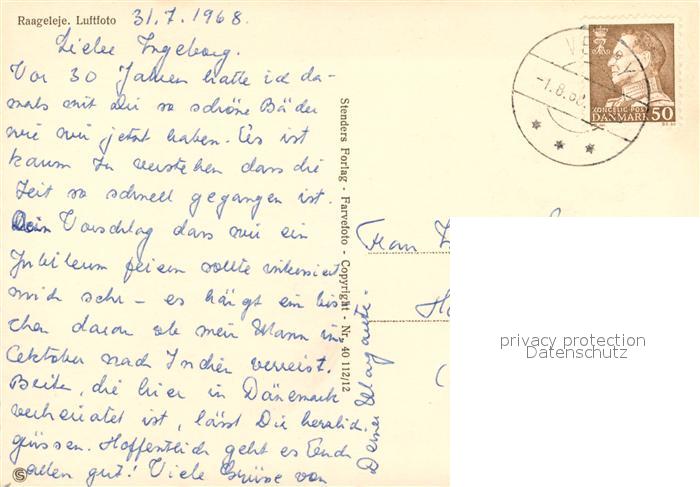 Raageleje. Luftfoto
31.7.1968.
Liebe Ingeborg.
Vor 30 Jahren hatte ich da-
mals mit Dir so schöne Bäder
wie wir jetzt haben. Es ist
kaum zu verstehen dass die
Zeit so schnell gegangen ist.
Dein Vorschlag dass wir ein
Jubileum feiern sollte interessiert
mich sehr – es hängt ein bis
chen daran ob mein Mann im
Oektober nach Indien verreist.
Beite, die hier in Dänemark
verheiratet ist, lässt Die herzlich
grüssen. Hoffentlich geht es Euch
allen gut! Viele Grüsse von
Deiner
Stenders Forlag - Farvefoto - Copyright - Nr. 40 112/12
-1.8.68.
KONGELIG POST
DANMARK 50
Frau
privacy protection
Datenschutz